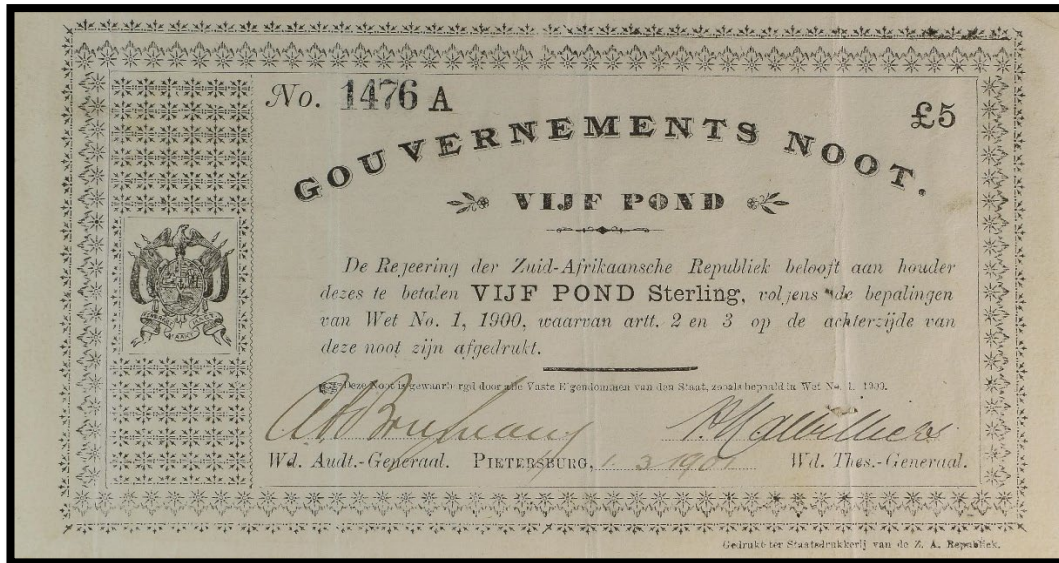 No. 1476 A
£5
GOUVERNEMENTS NOOT.
VIJF POND
De Regeering der Zuid-Afrikaansche Republiek belooft aan houder
dezes te betalen VIJF POND Sterling, volgens de bepalingen
van Wet No. 1, 1900, waarvan artt. 2 en 3 op de achterzijde van
deze noot zijn afgedrukt.
Deze Noot is gewaarborgd door alle Vaste Eigendommen van den Staat, zooals bepaald in Wet No. 1. 1900.
Wd. Audt.-Generaal. PIETERSBURG, 1.3.1901 Wd. Thes.-Generaal.
Gedrukt ter Staatsdrukkerij van de Z. A. Republiek.